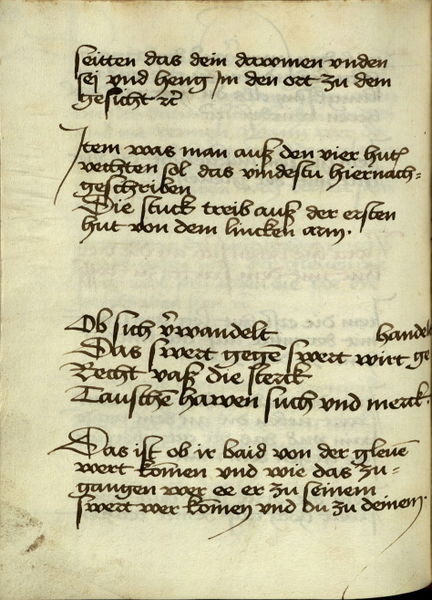 seitten das dein dawmen vnden
sej vnd heng Jm den ort zu dem
gesicht rc̃
Jtem was man auß den vier hutñ
vechten sol das vindestu hiernach=
geschriben
Die stuck treib auß der ersten
hut von dem lincken arm.
Ob sich v̾wandelt handel
Das swert gegẽ swert wirt ge
Recht vaß die sterck
Tauschẽ hawen such vnd merck.
Das ist ob ir baid von der gleuẽ
wert komen vnd wie das zu=
gangen wer ee er zu seinem
swert wer komen vnd du zu deinem.